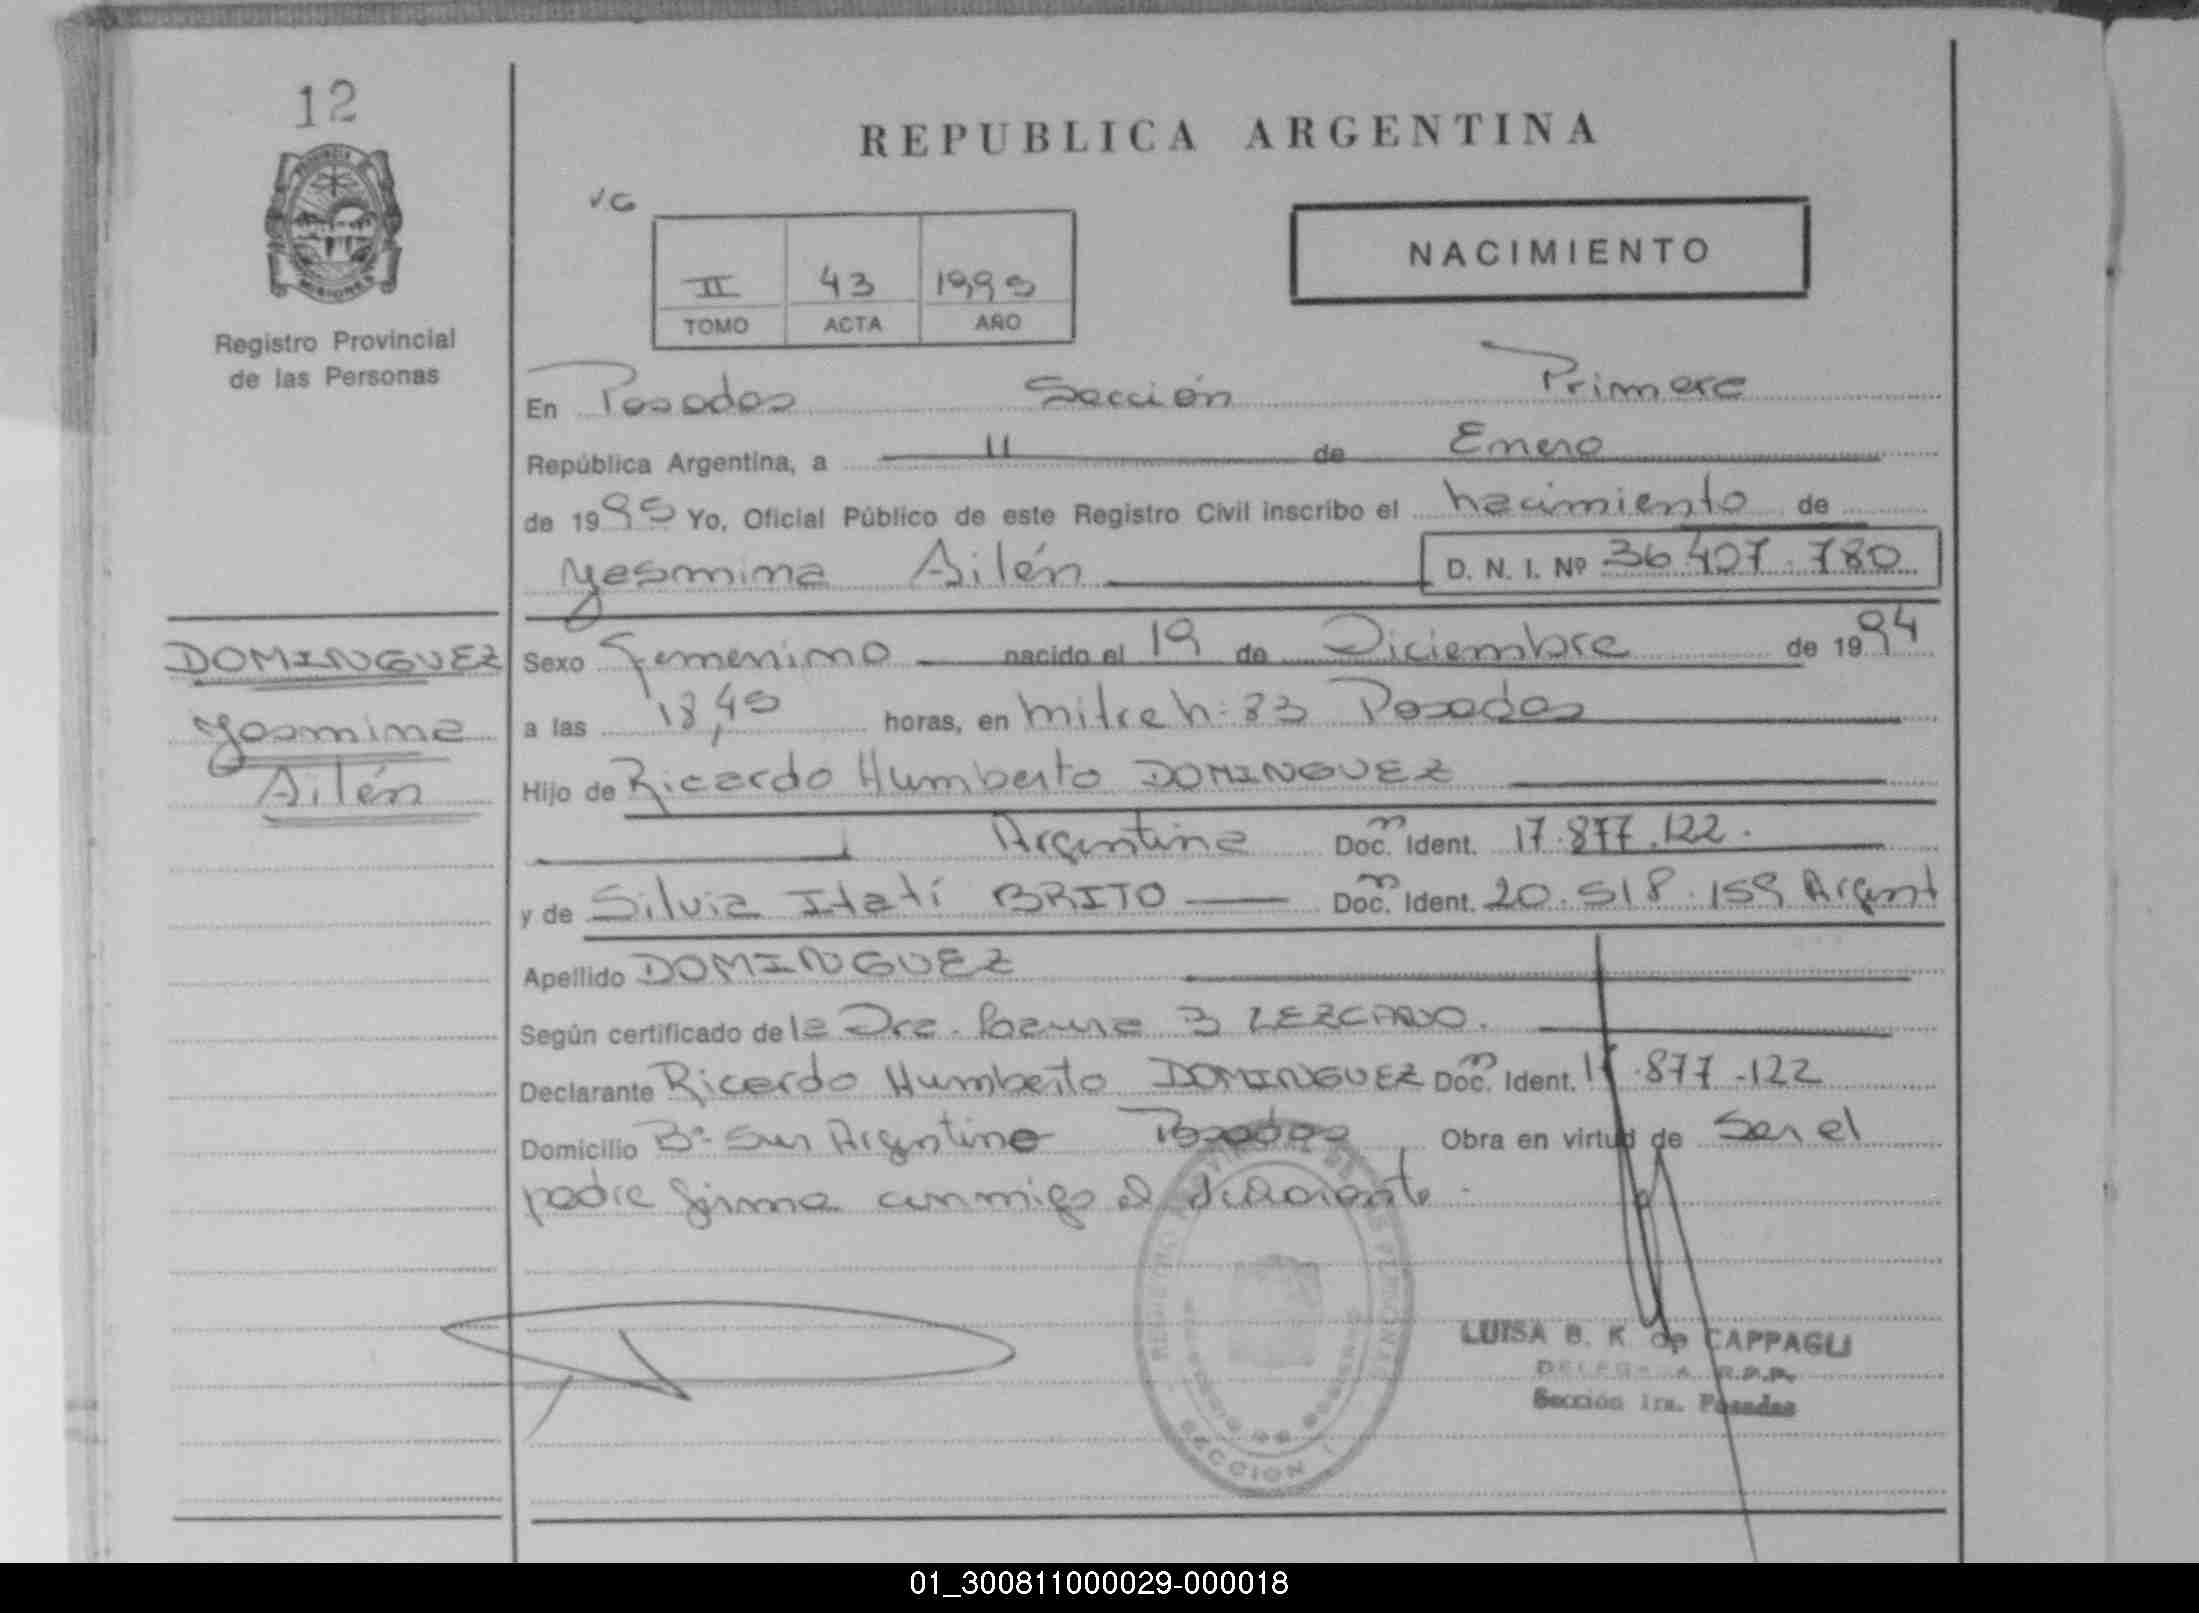 12
Registro Provincial
de las Personas
REPUBLICA ARGENTINA
NACIMIENTO
II 43 1995
TOMO ACTA AÑO
En Posadas Sección Primera
República Argentina, a 11 de Enero
de 1995 Yo, Oficial Público de este Registro Civil inscribo el nacimiento de
Yasmina Ailén D. N. I. Nº 36.407.780
DOMINGUEZ
Yasmina
Ailén
Sexo Femenino nacido el 19 de Diciembre de 1994
a las 18,45 horas, en mitre h: 83 Posadas
Hijo de Ricardo Humberto DOMINGUEZ
Argentina Doc. Ident. 17.877.122.
y de Silvia Itatí BRITO Doc. Ident. 20.518.159 Argent
Apellido DOMINGUEZ
Según certificado de la Dra. B LEZCANO.
Declarante Ricardo Humberto DOMINGUEZ Doc. Ident. 17.877.122
Domicilio Bº San Argentino Posadas Obra en virtud de Ser el
padre firma conmigo el declarante.
REGISTRO PROVINCIAL DE LAS PERSONAS
SECCION 1
LUISA B. K de CAPPAGLI
DELEGADA R.P.P.
Sección 1ra. Posadas
01_300811000029-000018